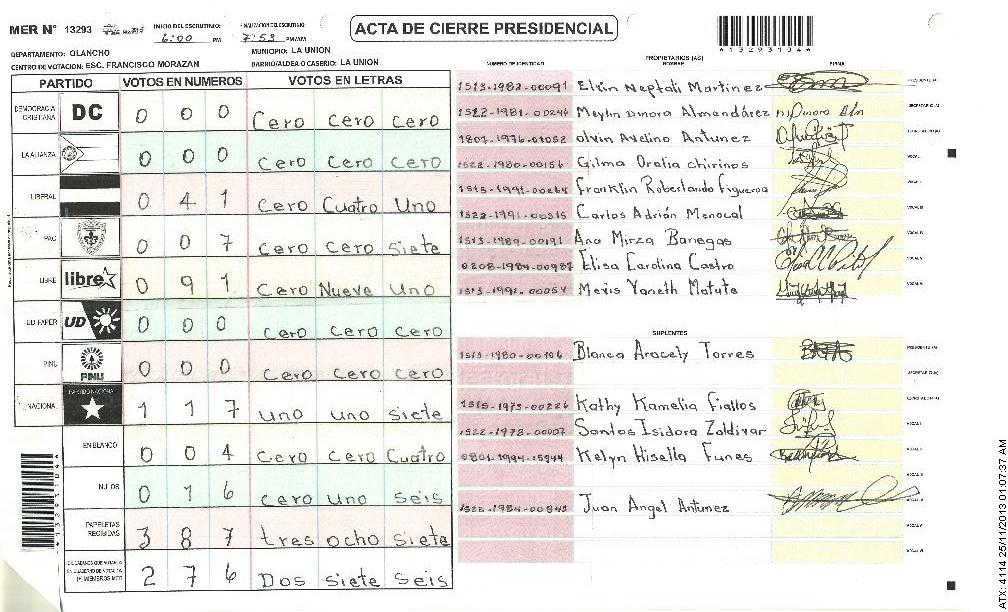 MER N° 13293
INICIO DEL ESCRUTINIO: 6:00 PM
FINALIZACION DEL ESCRUTINIO: 7:53 PM/AM
ACTA DE CIERRE PRESIDENCIAL
DEPARTAMENTO: OLANCHO
MUNICIPIO: LA UNION
CENTRO DE VOTACION: ESC. FRANCISCO MORAZAN
BARRIO/ALDEA O CASERIO: LA UNION
PARTIDO VOTOS EN NUMEROS VOTOS EN LETRAS
DEMOCRACIA CRISTIANA DC 0 0 0 Cero Cero Cero
LA ALIANZA 0 0 0 Cero Cero Cero
LIBERAL 0 4 1 Cero Cuatro Uno
PAC 0 0 7 Cero Cero Siete
LIBRE libre 0 9 1 Cero Nueve Uno
UD-FAPER UD 0 0 0 Cero Cero Cero
PINU PINU 0 0 0 Cero Cero Cero
NACIONAL PARTIDO NACIONAL 1 1 7 Uno Uno Siete
EN BLANCO 0 0 4 Cero Cero Cuatro
NULOS 0 1 6 Cero Uno Seis
PAPELETAS RECIBIDAS 3 8 7 tres ocho siete
CIUDADANOS QUE VOTARON 2 7 6 Dos Siete Seis
PROPIETARIOS (AS)
NUMERO DE IDENTIDAD NOMBRE FIRMA
1513-1982-00091 Elvin Neptali Martinez PRESIDENTE (A)
1522-1981-00246 Meylin Dinora Almendárez SECRETARIO (A)
1807-1976-01052 olvin Avelino Antunez
1522-1980-00156 Gilma Oralia chirinos VOCAL I
1515-1991-00264 Franklin Roberlando Figueroa VOCAL II
1522-1991-00315 Carlos Adrián Menocal VOCAL III
1513-1989-00191 Ana Mirza Banegas VOCAL IV
0208-1984-00987 Elisa Carolina Castro VOCAL V
1513-1991-00054 Mexis Yaneth Matute VOCAL VI
SUPLENTES
1513-1980-00106 Blanca Aracely Torres PRESIDENTE (A)
SECRETARIO (A)
1515-1973-00226 Kathy Kamelia Fiallos
1522-1978-00007 Santos Isidora Zaldivar VOCAL I
0801-1994-15944 Kelyn Hisella Funes VOCAL II
VOCAL III
1522-1984-00343 Juan Angel Antunez VOCAL IV
VOCAL V
VOCAL VI
ATX: 4114 25/11/2013 01:07:37 AM